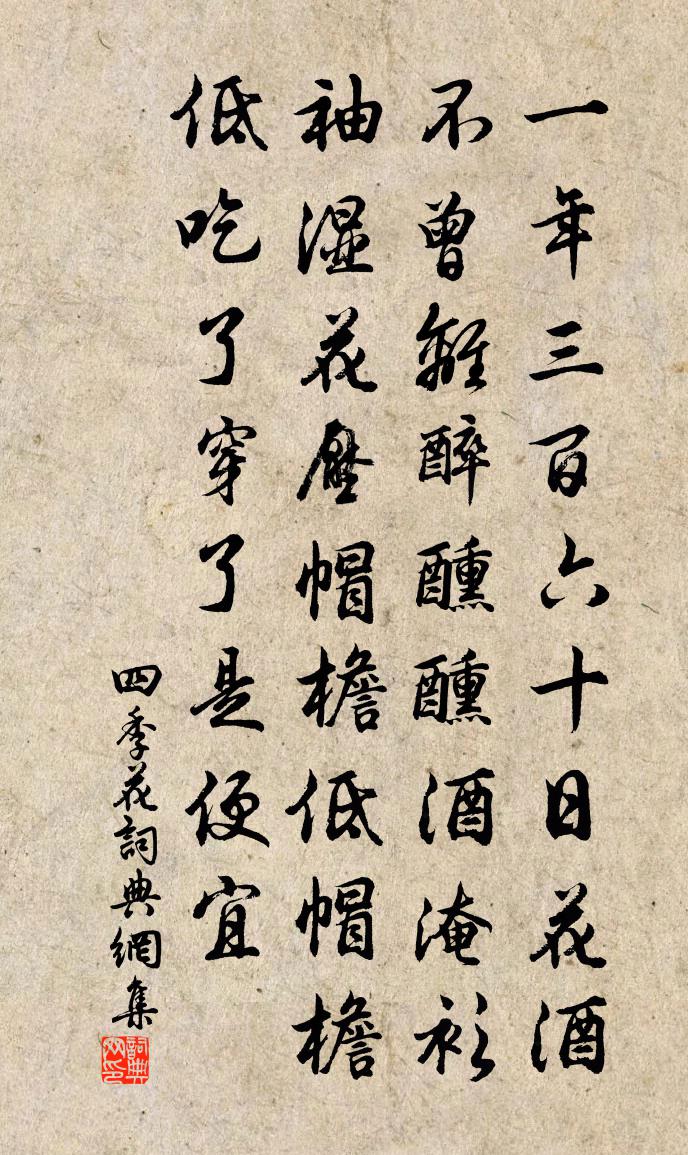 一年三百六十日花酒
不曾離醉醺醺酒淹衫
袖濕花壓帽檐低帽檐
低吃了穿了是便宜
四季花詞典網集
詞典網印